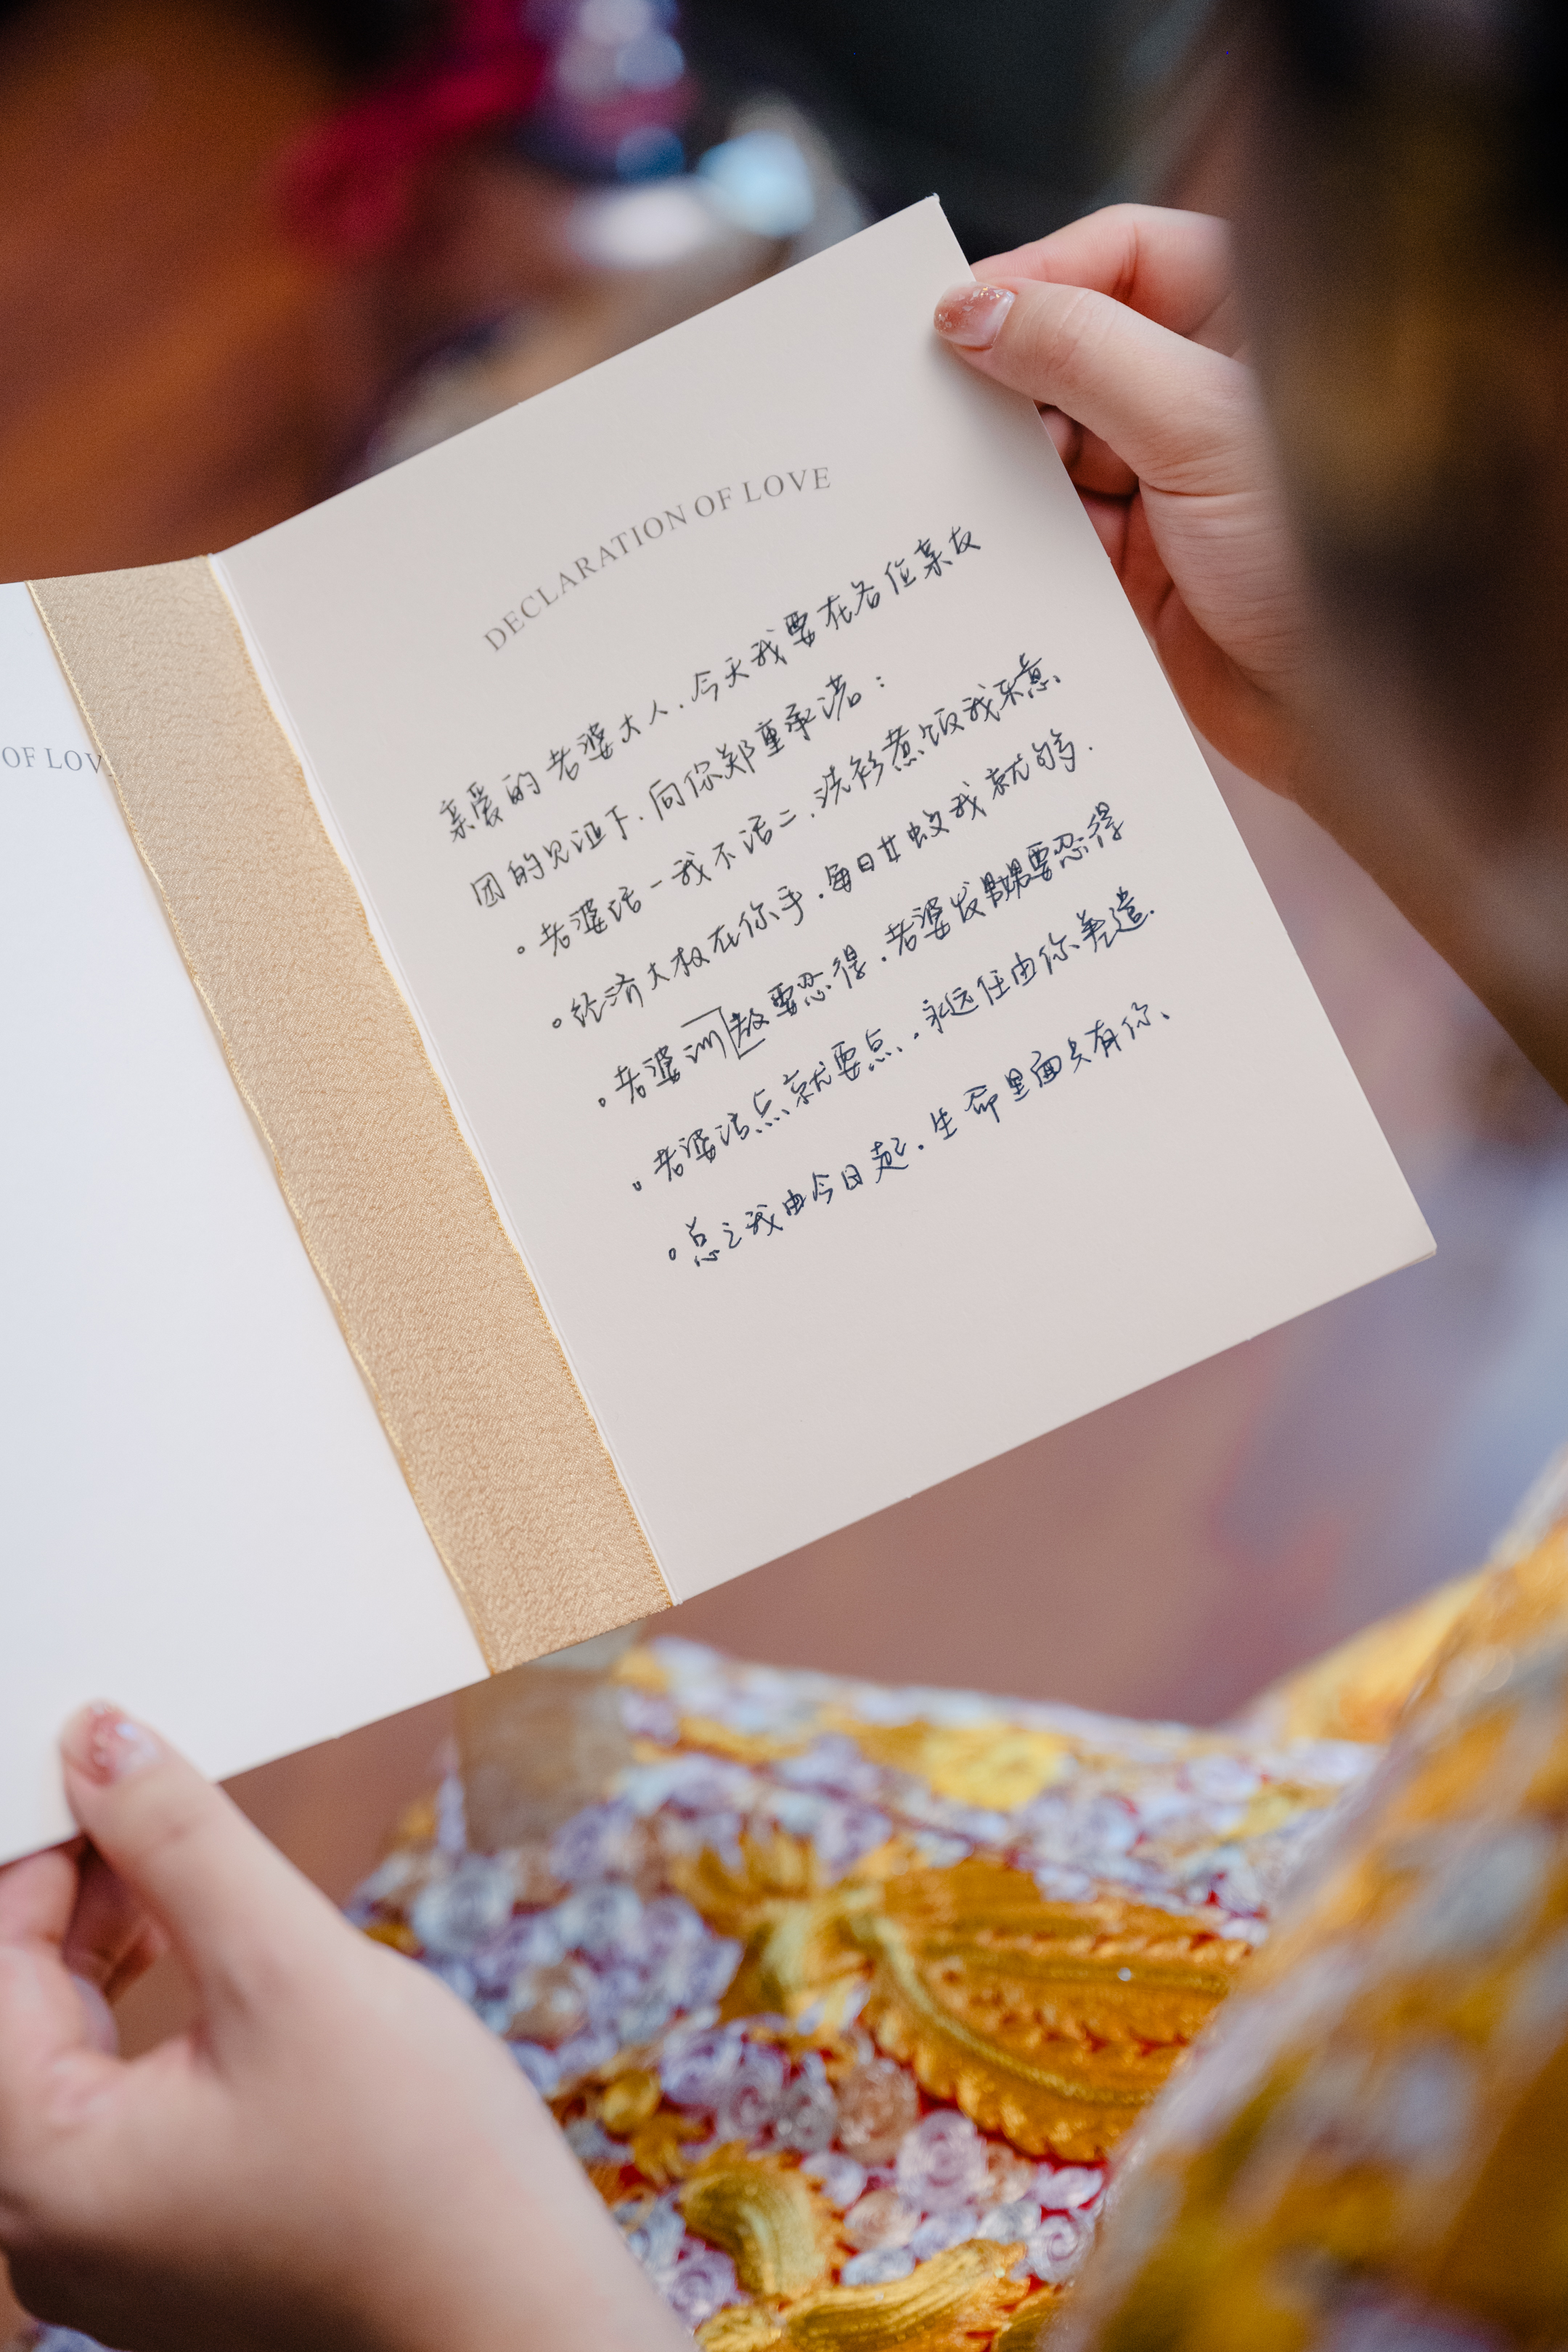 OF LOV
DECLARATION OF LOVE
亲爱的老婆大人.今天我要在各位亲友
团的见证下.向你郑重承诺：
。老婆话一我不话二.洗衫煮饭我乐意.
。经济大权在你手.每日廿蚊我就够.
。老婆训教要忍得.老婆发要忍得
。老婆话点就要点.永远任由你差遣.
。总之我由今日起.生命里面只有你、